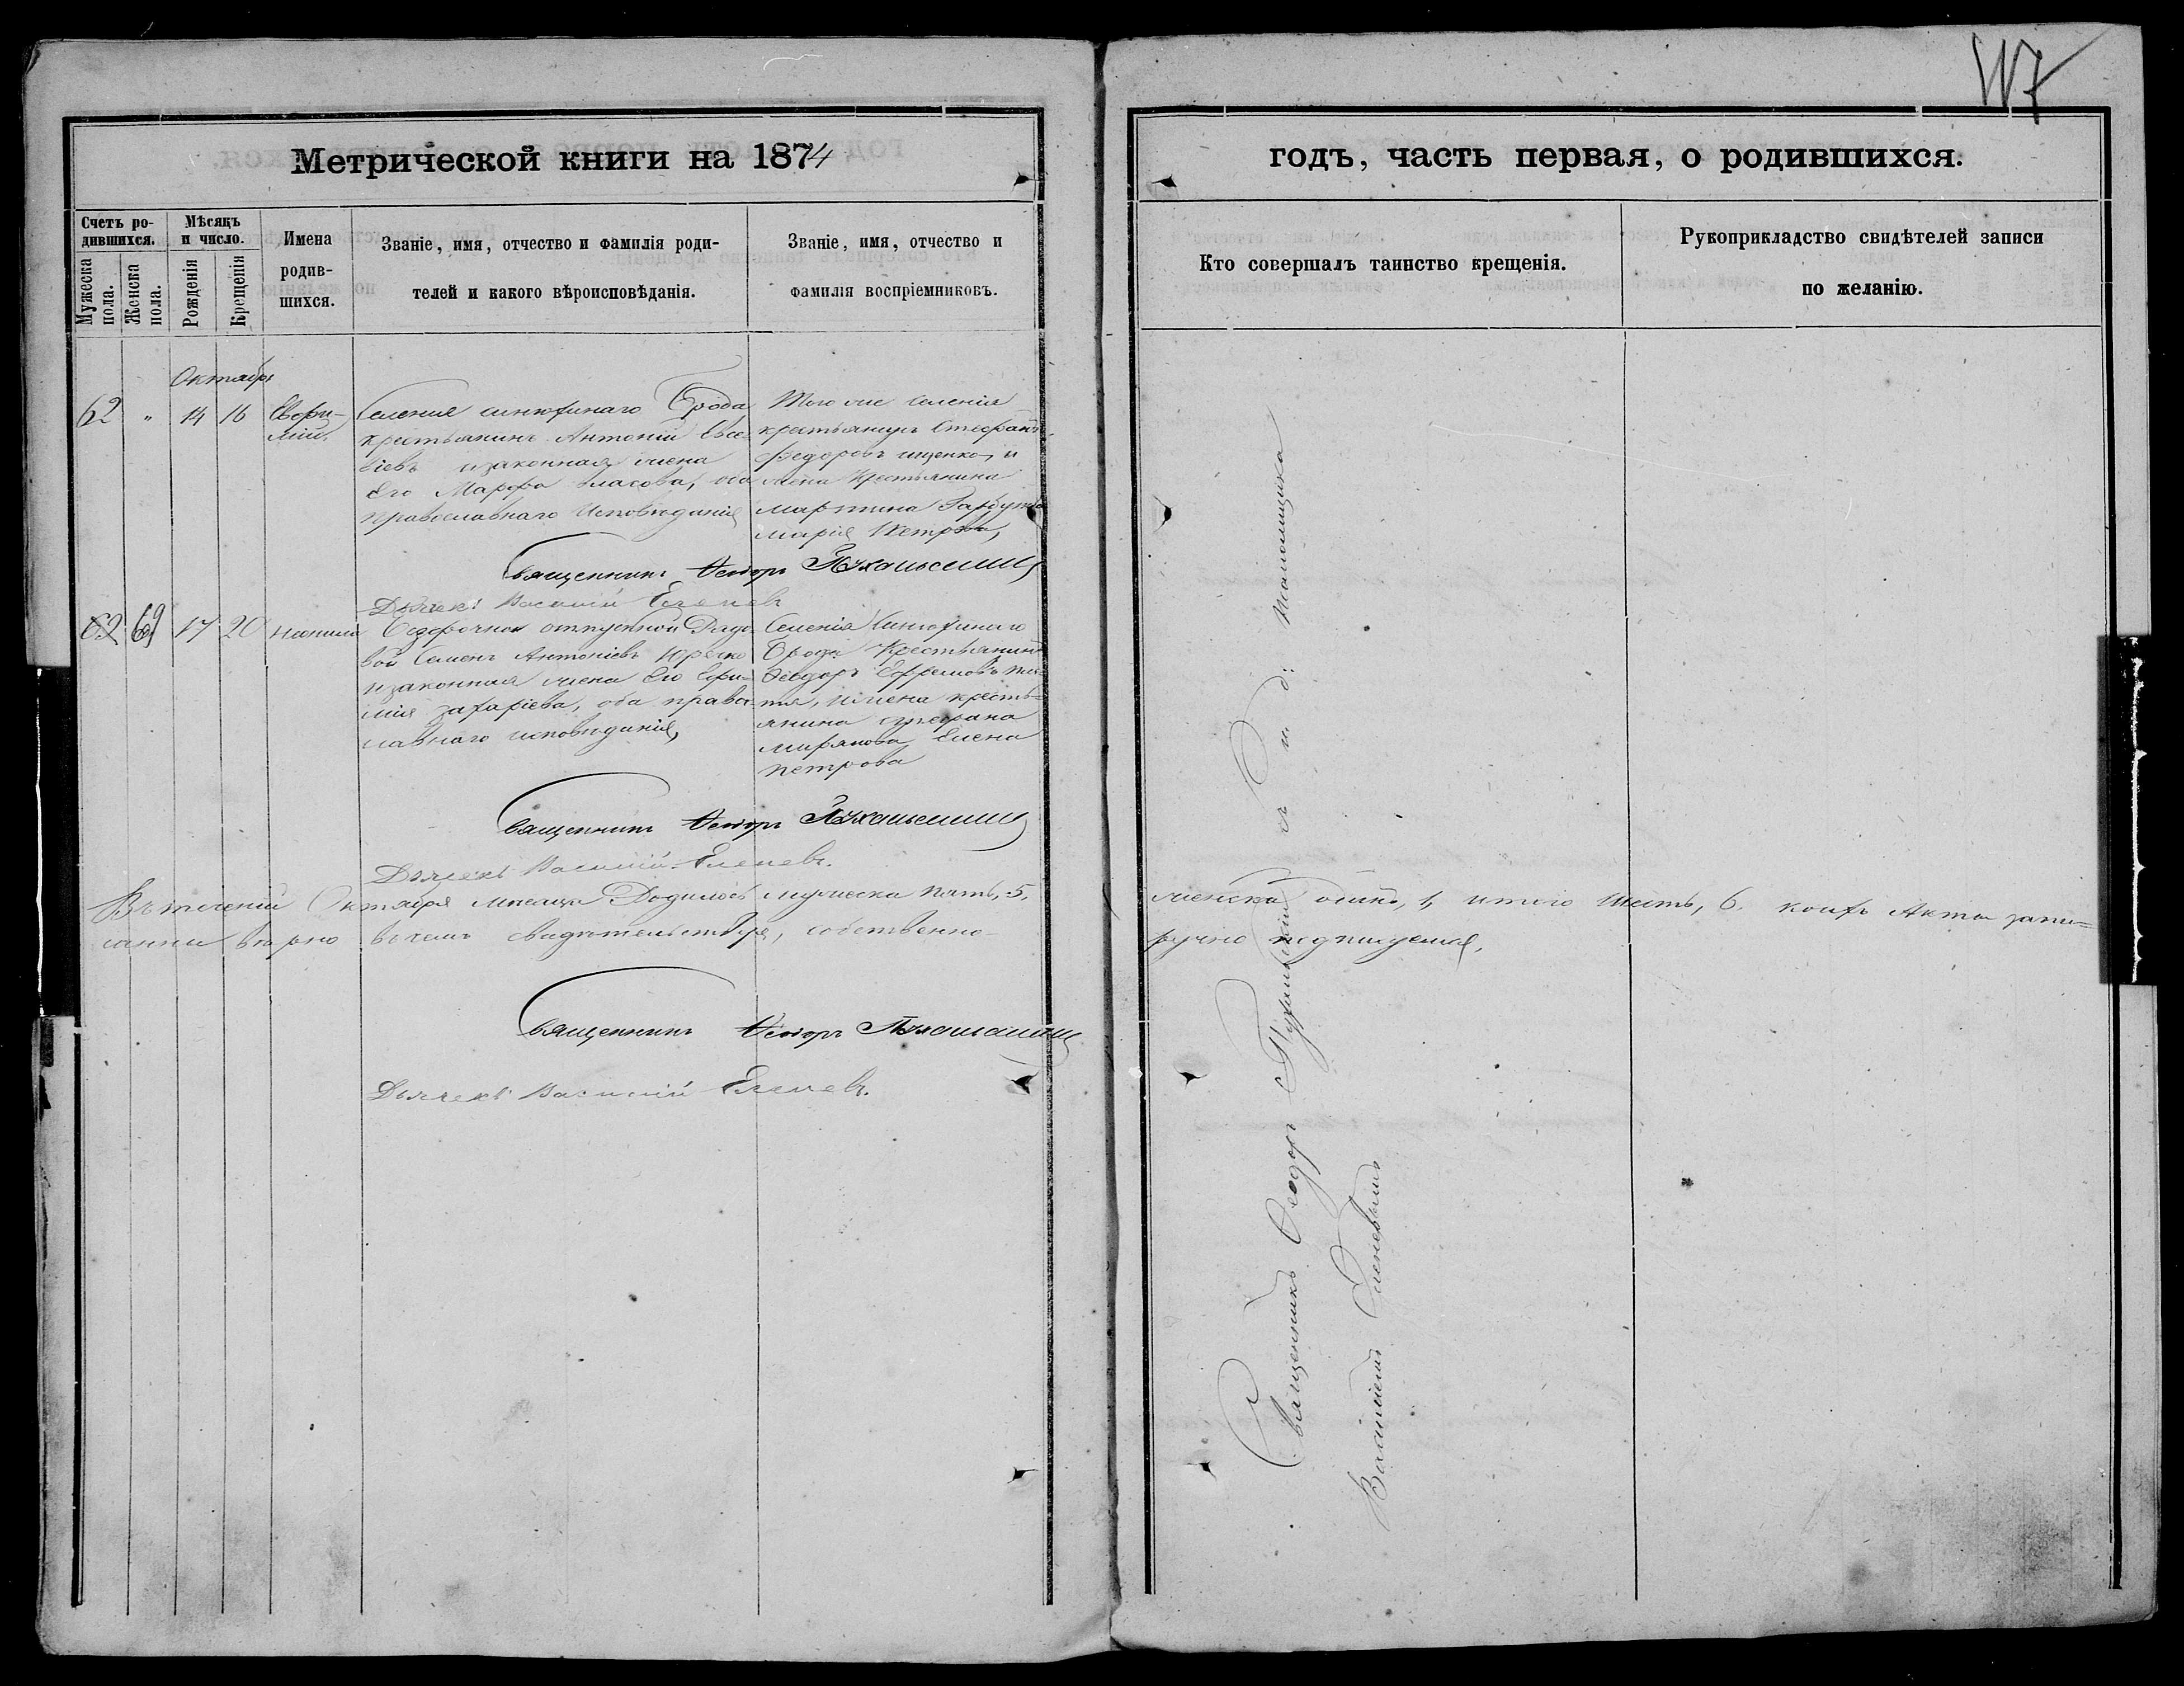 117
Метрической книги на 1874
годъ, часть первая, о родившихся.
Счетъ ро-
дившихся.
Мѣсяцъ
и число.
Мужеска
пола.
Женска
пола.
Рожденія
Крещенія
Имена
родив-
шихся.
Званіе, имя, отчество и фамилія роди-
телей и какого вѣроисповѣданія.
Званіе, имя, отчество и
фамилія воспріемниковъ.
Кто совершалъ таинство крещенія.
Рукоприкладство свидѣтелей записи
по желанію.
Октябрь
62 " 14 16
Селенія Брода
крестьянинъ Антоній Евсе-
віевъ изаконная жена
Его Марфа Власова, оба
православнаго Исповѣданія
Того же Селенія
крестьянинъ Стефанъ
Федоровъ ищенко, и
жена Крестьянина
мартина
марія Петрова,
Священникъ Ѳеодоръ
Дьячекъ Василій Еленевъ
69 17 20
отпускной Рядо-
вой Семенъ Антоніевъ
изаконная жена Его Ефи-
мія захаріева, оба право-
славнаго исповѣданія,
Селенія
Брода Крестьянинъ
Ѳеодоръ Ефремовъ
ижена кресть-
янина стефана
миронова Елена
петрова
Священникъ Ѳеодоръ
Дьячекъ Василій Еленевъ.
Въ теченіи Октября Мѣсяца Родилось мужеска пять, 5,
женска одна, 1, итого Шесть, 6. коихъ Акты запи-
санны вѣрно вчемъ свидѣтельствуя, собственно-
ручно подписуемся,
Священникъ Ѳеодоръ
Дьячекъ Василій Еленевъ.
Священникъ Ѳеодоръ
Василіемъ Еленевымъ